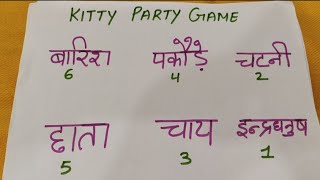 KITTY PARTY GAME
बारिश पकौड़े चटनी
6 4 2
छाता चाय इन्द्रधनुष
5 3 1